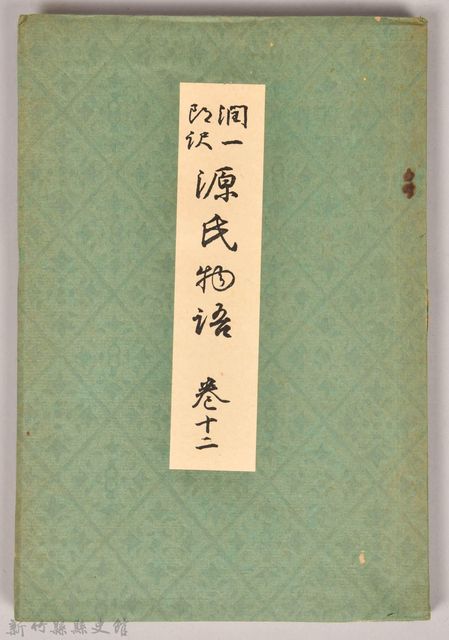 潤一
郎訳
源氏物語 巻十二
新竹縣縣史館